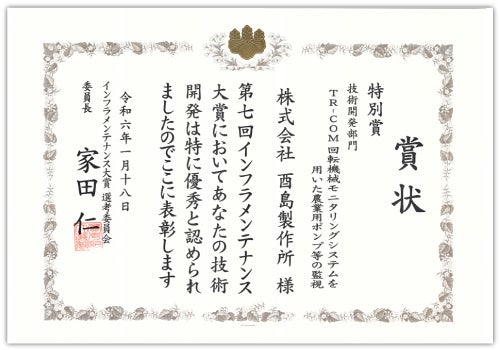 賞状
特別賞
技術開発部門
TR-COM回転機械モニタリングシステムを
用いた農業用ポンプ等の監視
株式会社 酉島製作所 様
第七回インフラメンテナンス
大賞においてあなたの技術
開発は特に優秀と認められ
ましたのでここに表彰します
令和六年一月十八日
インフラメンテナンス大賞 選考委員会
委員長
家田 仁